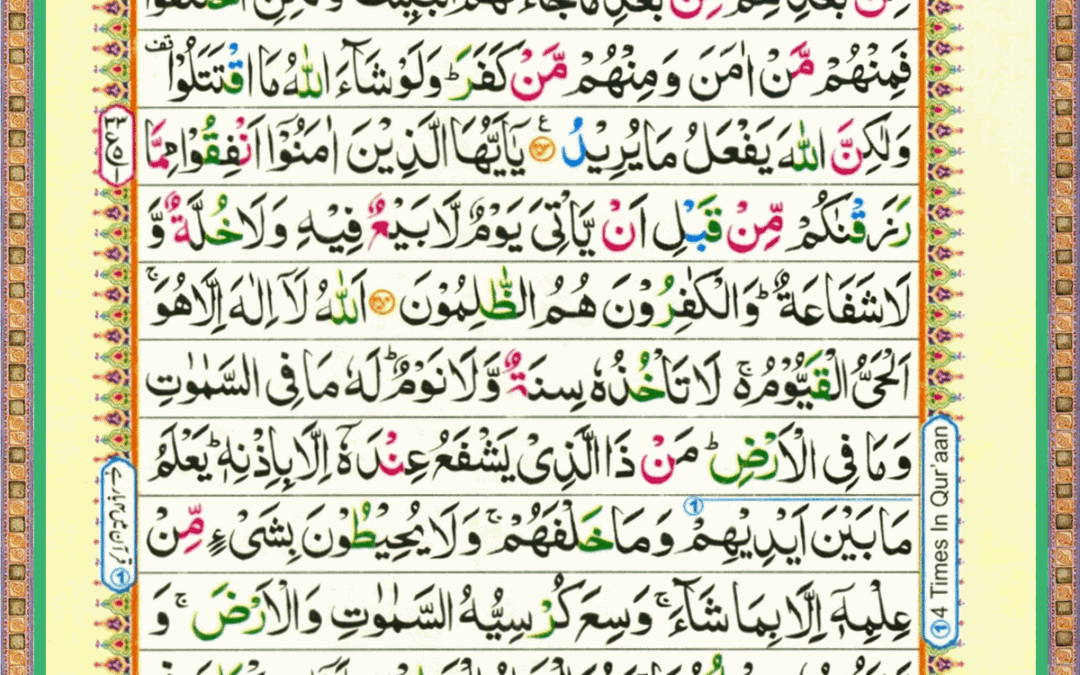 مِنْۢ بَعْدِهِمْ مِّنْۢ بَعْدِ مَا جَآءَتْهُمُ الْبَيِّنٰتُ وَلٰكِنِ اخْتَلَفُوْا
فَمِنْهُمْ مَّنْ اٰمَنَ وَمِنْهُمْ مَّنْ كَفَرَ ؕ وَلَوْ شَآءَ اللّٰهُ مَا اقْتَتَلُوْا ۫
وَلٰكِنَّ اللّٰهَ يَفْعَلُ مَا يُرِيْدُ ۠ ﴿۲۵۳﴾ يٰۤاَيُّهَا الَّذِيْنَ اٰمَنُوْۤا اَنْفِقُوْا مِمَّا
رَزَقْنٰكُمْ مِّنْ قَبْلِ اَنْ يَّاْتِىَ يَوْمٌ لَّا بَيْعٌ فِيْهِ وَلَا خُلَّةٌ وَّ
لَا شَفَاعَةٌ ؕ وَالْكٰفِرُوْنَ هُمُ الظّٰلِمُوْنَ ﴿۲۵۴﴾ اَللّٰهُ لَاۤ اِلٰهَ اِلَّا هُوَ ۚ
اَلْحَىُّ الْقَيُّوْمُ ۚ ۬ لَا تَاْخُذُهٗ سِنَةٌ وَّلَا نَوْمٌ ؕ لَهٗ مَا فِى السَّمٰوٰتِ
وَمَا فِى الْاَرْضِ ؕ مَنْ ذَا الَّذِىْ يَشْفَعُ عِنْدَهٗۤ اِلَّا بِاِذْنِهٖ ؕ يَعْلَمُ
مَا بَيْنَ اَيْدِيْهِمْ ① وَمَا خَلْفَهُمْ ۚ وَلَا يُحِيْطُوْنَ بِشَىْءٍ مِّنْ
عِلْمِهٖۤ اِلَّا بِمَا شَآءَ ۚ وَسِعَ كُرْسِيُّهُ السَّمٰوٰتِ وَالْاَرْضَ ۚ وَ
① 4 Times In Qur'aan
① قرآن میں ۴ بار ہے